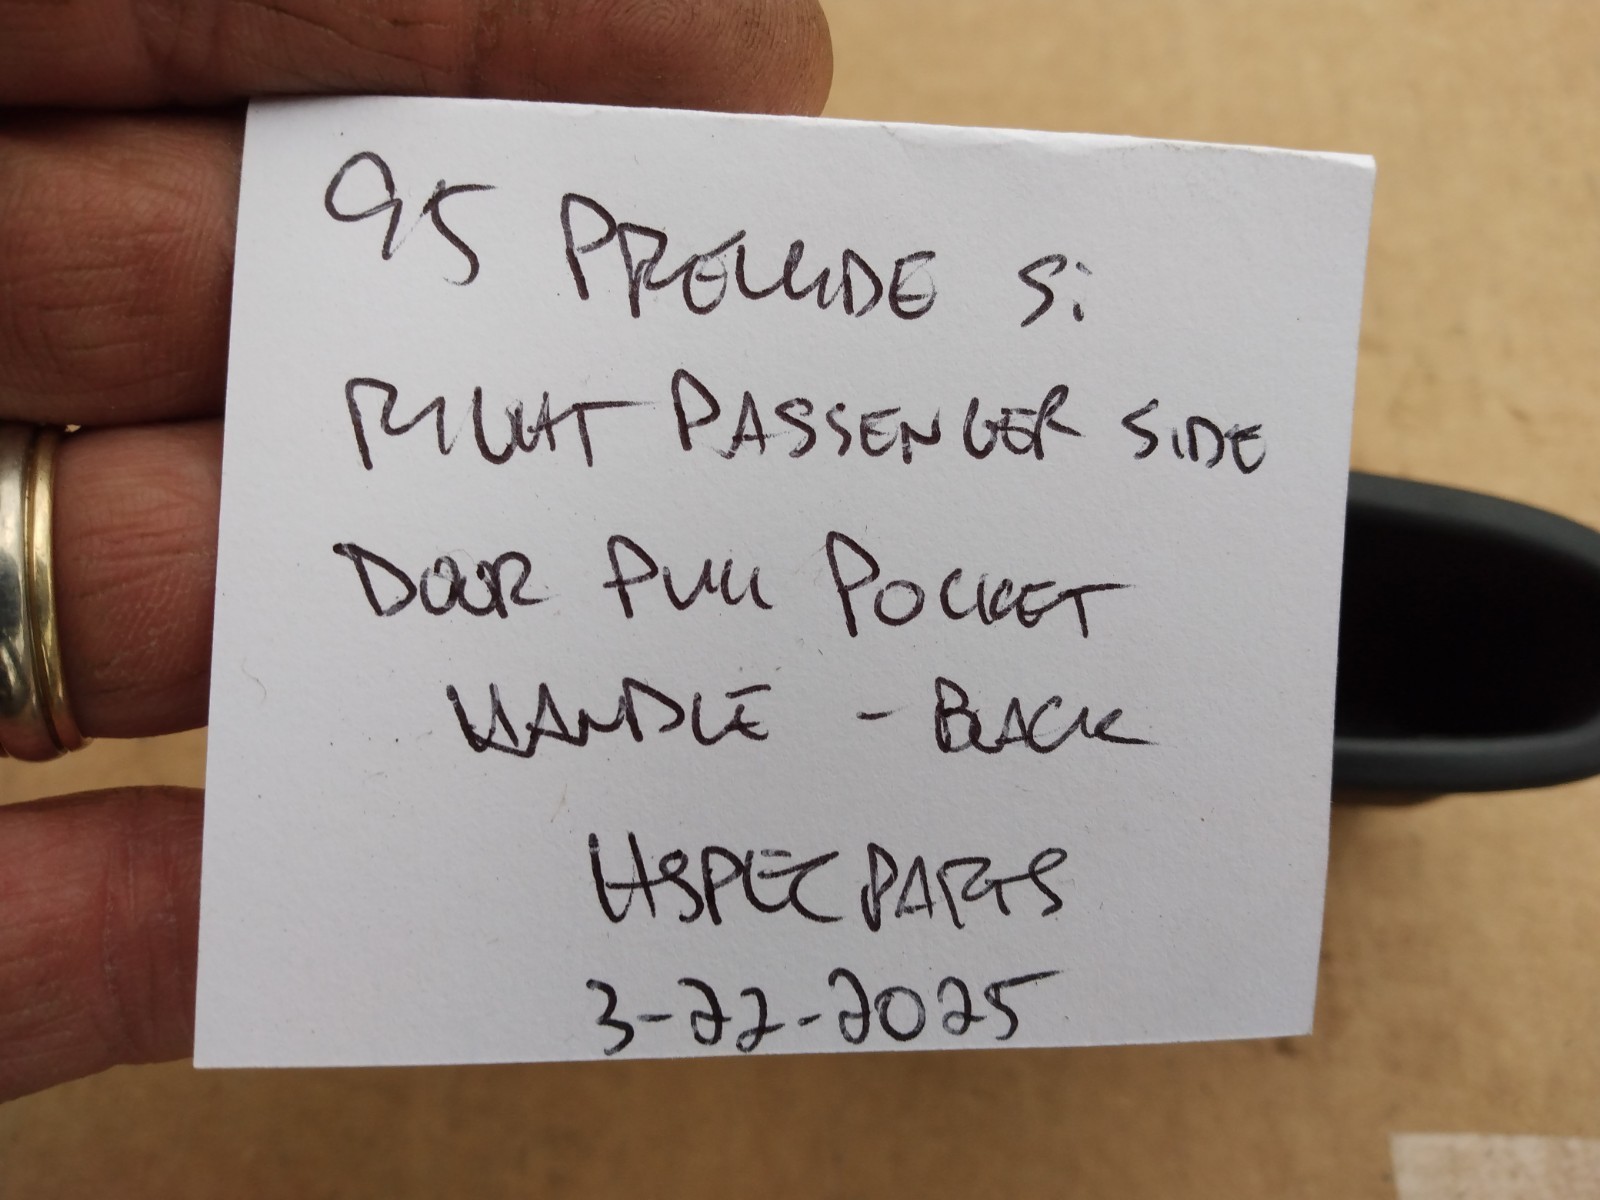 95 PRELUDE Si
RIGHT PASSENGER SIDE
DOOR PULL POCKET
HANDLE - BLACK
HSPEC PARTS
3-22-2025